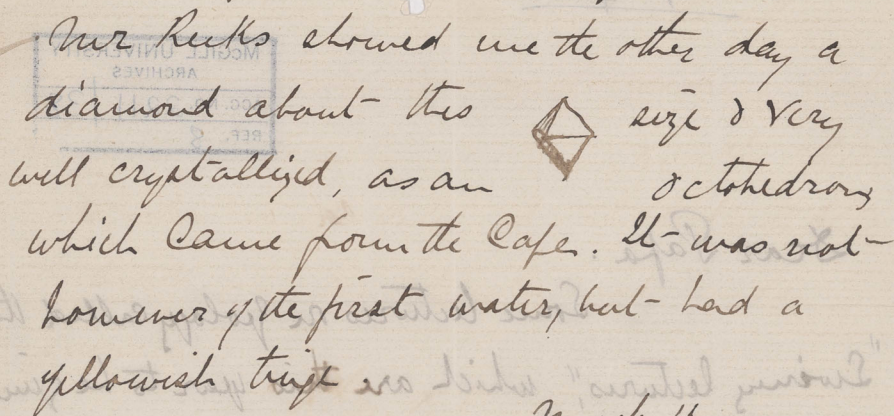 Mr Reeks showed me the other day a
diamond about this size & very
well crystallized, as an octohedron,
which came from the Cape. It was not
however of the first water, but had a
yellowish tinge.
McGILL UNIVERSITY
ARCHIVES
ACC. NO.
REF. 8
Dear Papa
"Evening lectures", which are